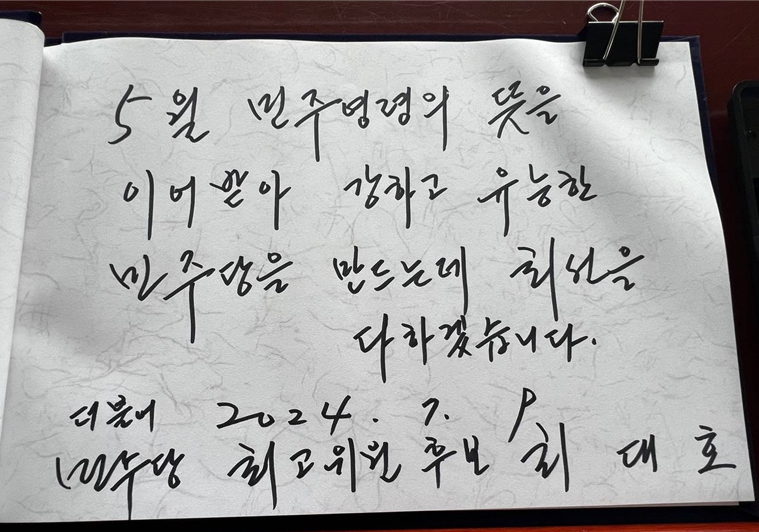 5월 민주영령의 뜻을
이어받아 강하고 유능한
민주당을 만드는데 최선을
다하겠습니다.
더불어 2024. 7. 9
민주당 최고위원 후보 최 대 호